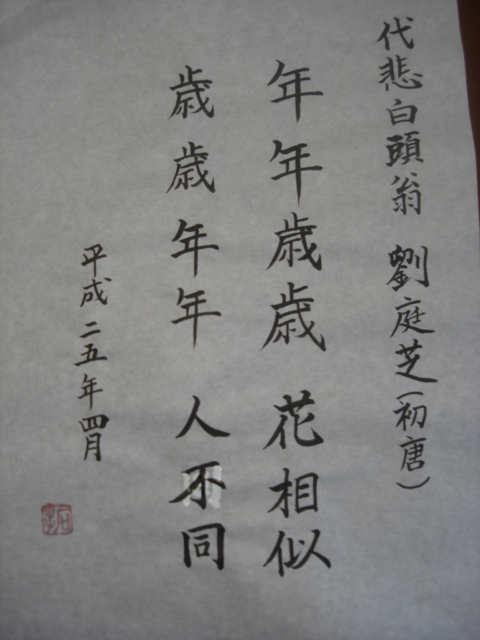 代悲白頭翁 劉庭芝（初唐）
年年歳歳 花相似
歳歳年年 人不同
平成二五年四月